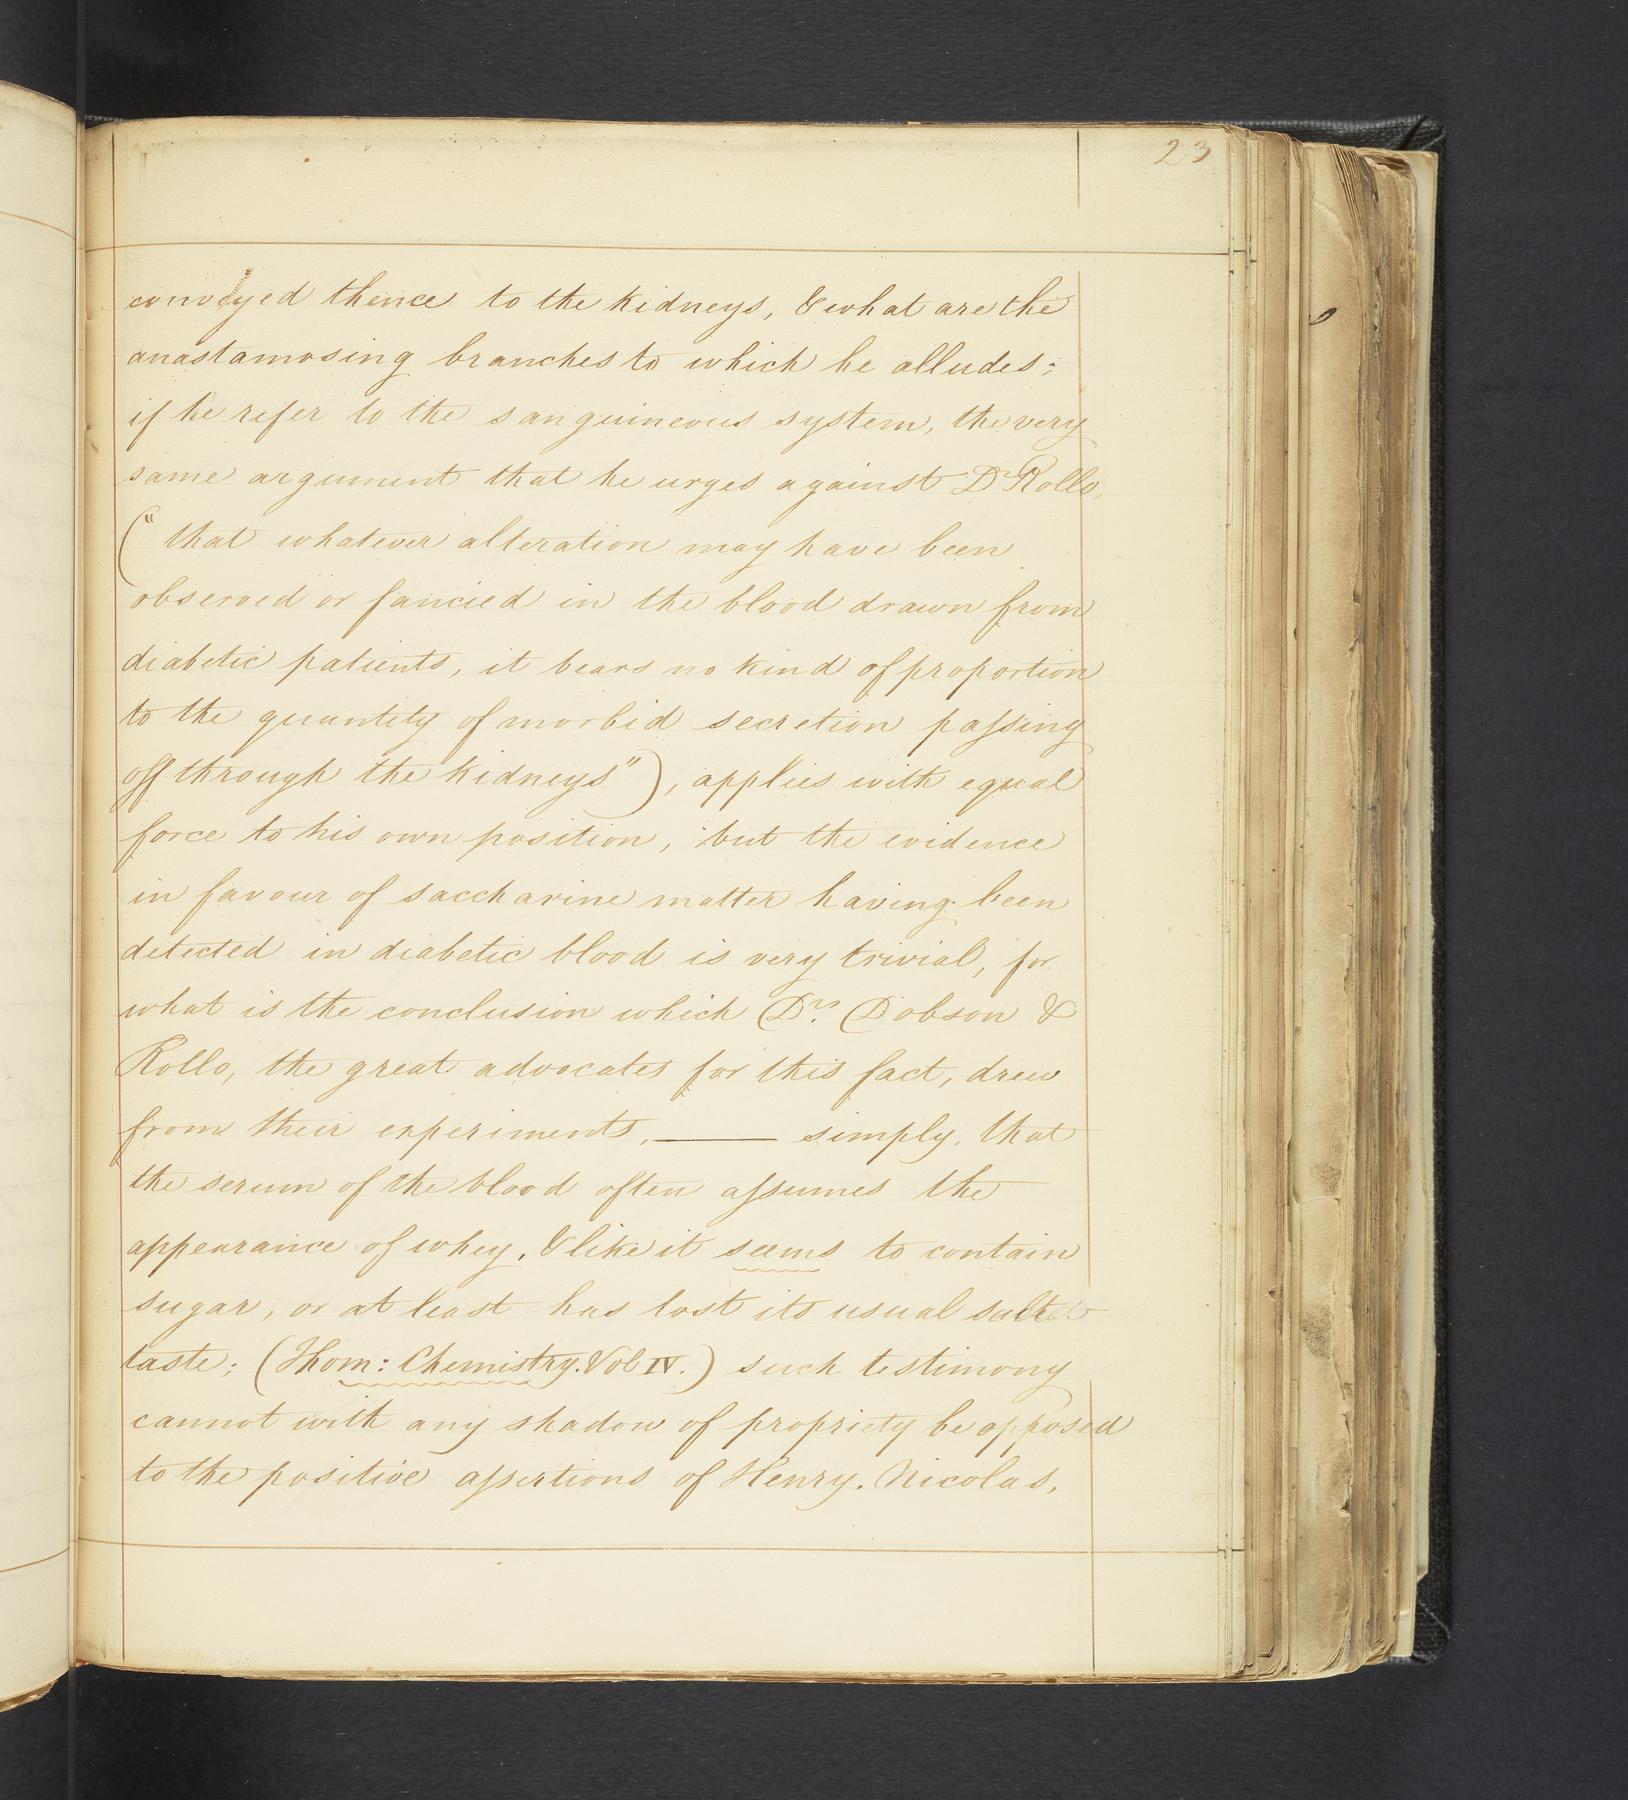 23
conveyed thence to the kidneys, & what are the
anastamosing branches to which he alludes;
if he refer to the sanguineous system, the very
same argument that he urges against Dr Rollo,
(" that whatever alteration may have been
observed or fancied in the blood drawn from
diabetic patients, it bears no kind of proportion
to the quantity of morbid secretion passing
off through the kidneys"), applies with equal
force to his own position, but the evidence
in favour of saccharine matter having been
detected in diabetic blood is very trivial, for
what is the conclusion which Drs. Dobson &
Rollo, the great advocates for this fact, drew
from their experiments, —— simply, that
the serum of the blood often assumes the
appearance of whey, & like it seems to contain
sugar, or at least has lost its usual
taste; (Thom: Chemistry. Vol IV.) such testimony
cannot with any shadow of propriety be opposed
to the positive assertions of Henry, Nicolas,